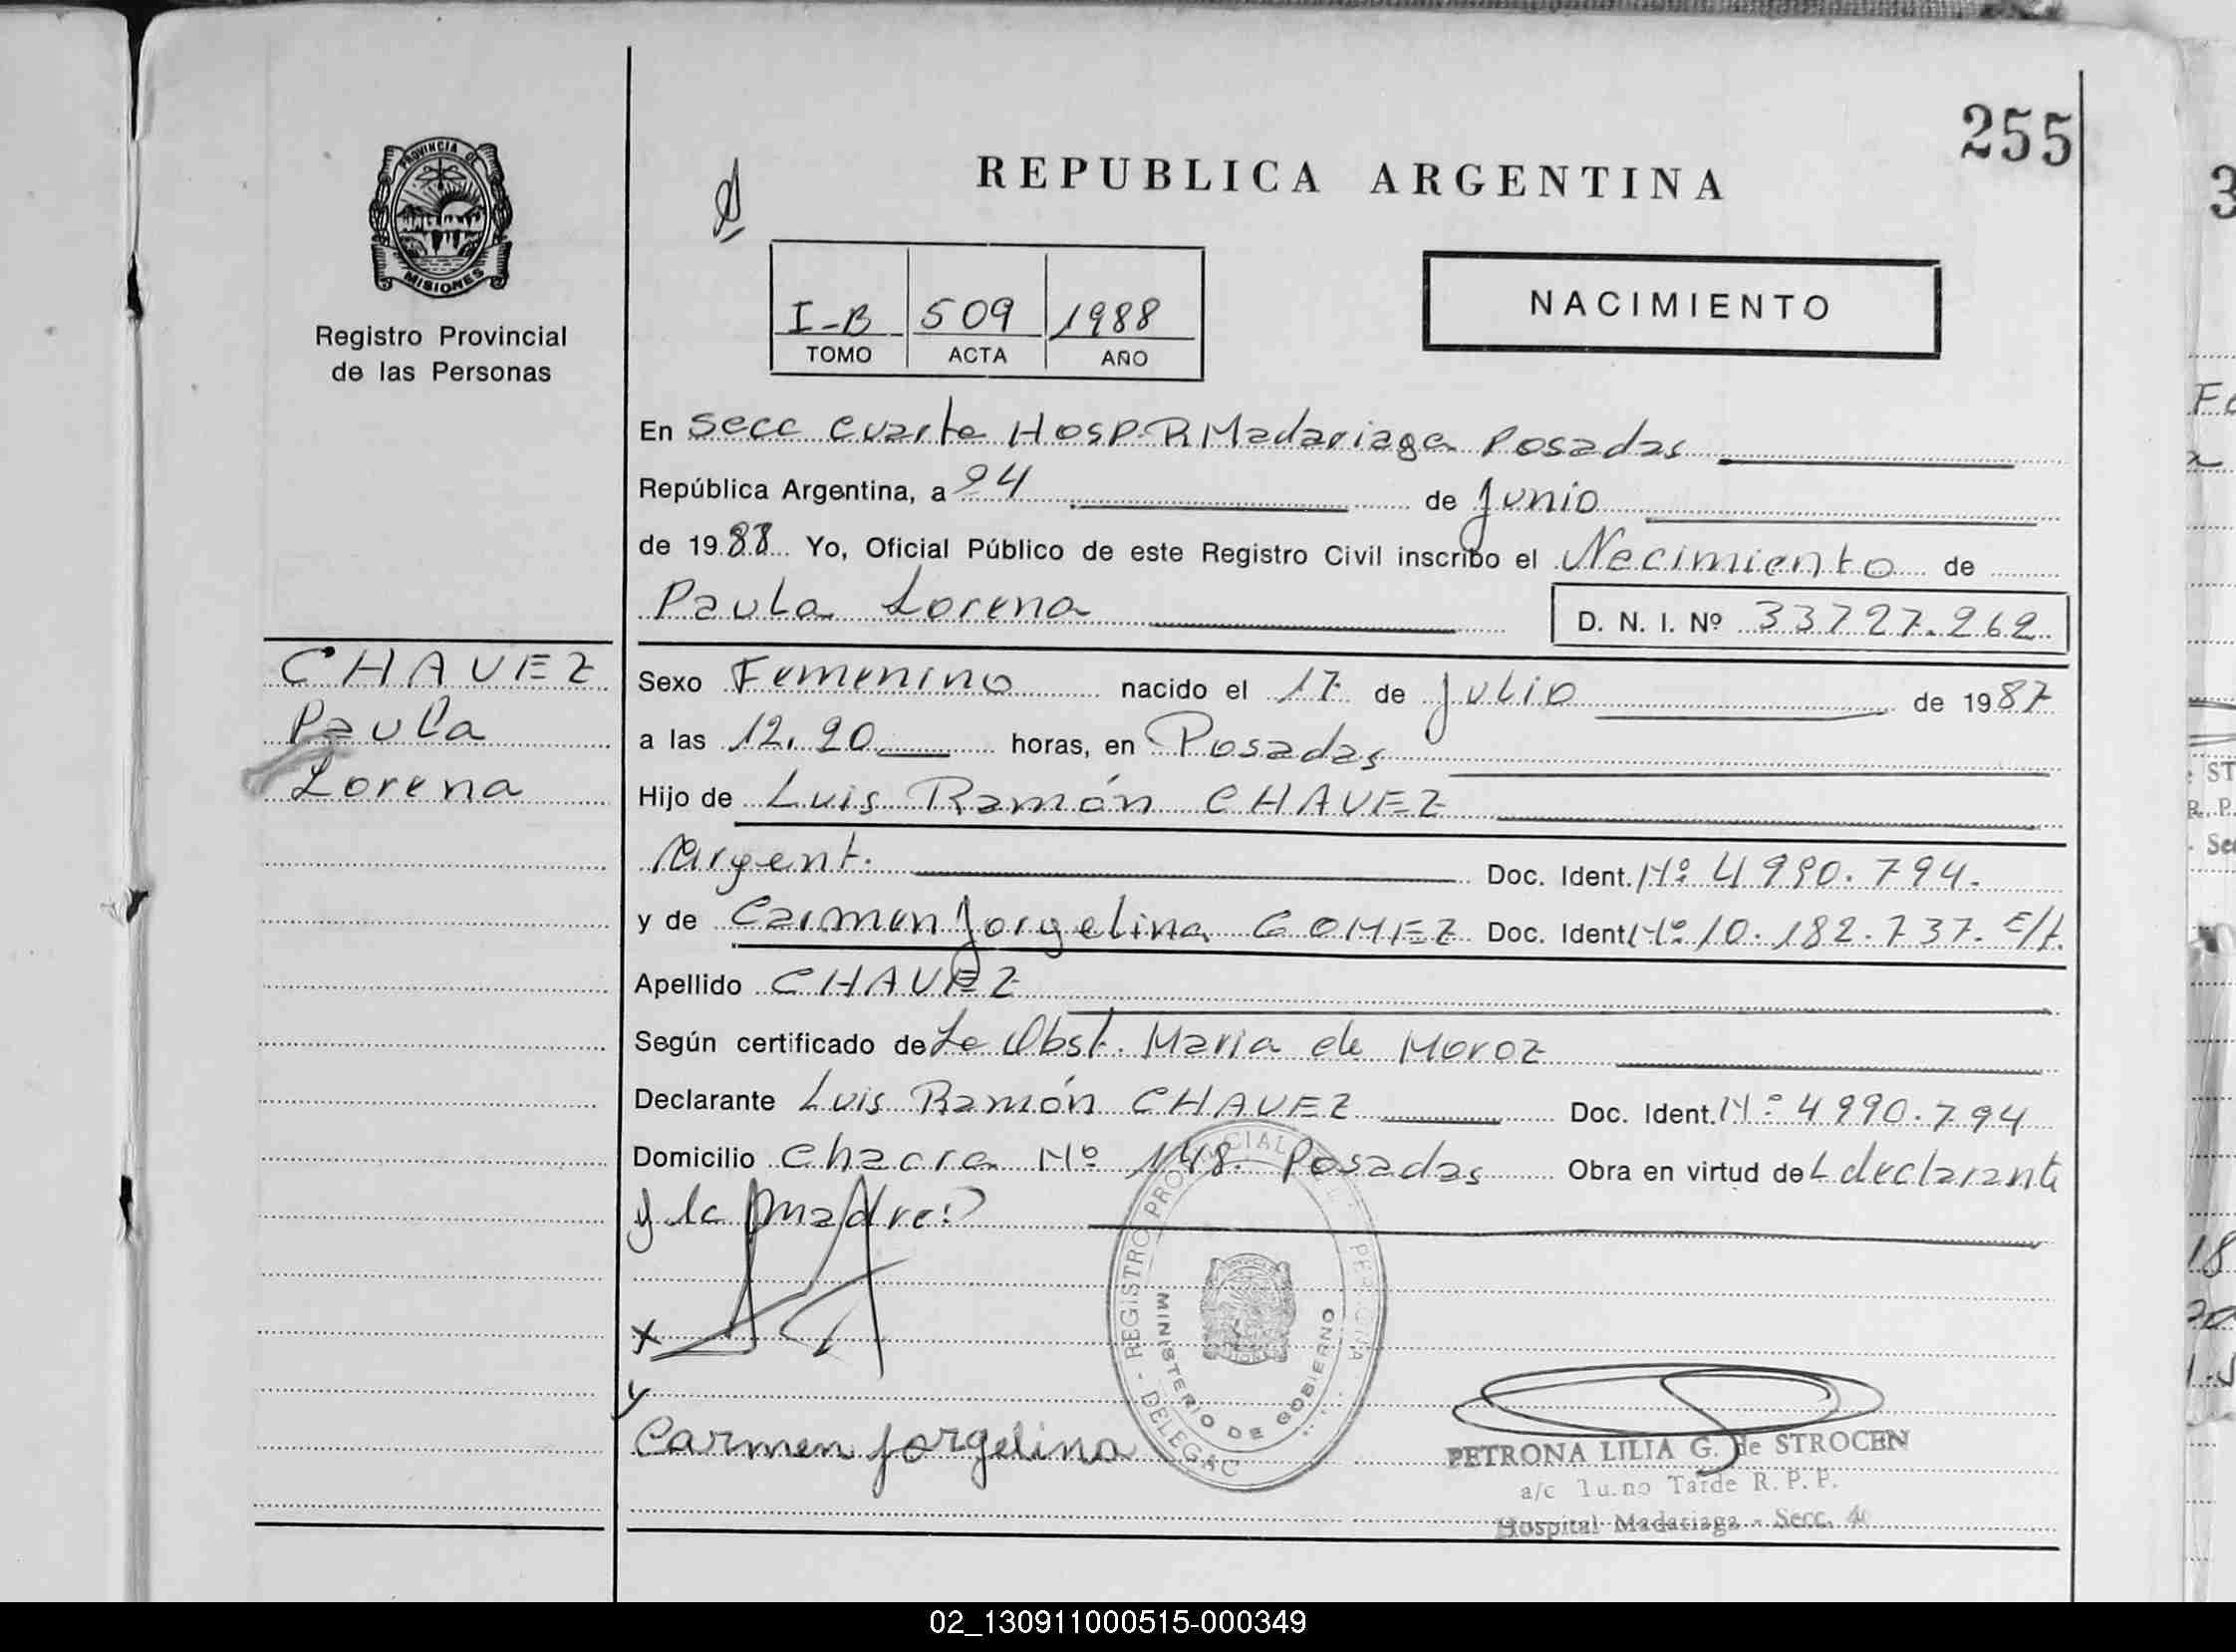 255
REPUBLICA ARGENTINA
PROVINCIA DE
MISIONES
Registro Provincial
de las Personas
I-B 509 1988
TOMO ACTA AÑO
NACIMIENTO
En Secc cuarta Hosp. R Madariaga Posadas
República Argentina, a 24 de Junio
de 1988 Yo, Oficial Público de este Registro Civil inscribo el Nacimiento de
Paula Lorena D. N. I. Nº 33727.262
CHAVEZ
Paula
Lorena
Sexo Femenino nacido el 17 de Julio de 1987
a las 12.20 horas, en Posadas
Hijo de Luis Ramón CHAVEZ
Argent. Doc. Ident. Nº 4990.794.
y de Carmen Jorgelina GOMEZ Doc. Ident Nº 10.182.737. E/t.
Apellido CHAVEZ
Según certificado de La Obst. Maria de Moroz
Declarante Luis Ramón CHAVEZ Doc. Ident. Nº 4990.794
Domicilio Chacra Nº 148. Posadas Obra en virtud de L declarante
y la madre
x
y
Carmen Jorgelina
REGISTRO PROVINCIAL
MINISTERIO DE GOBIERNO
PETRONA LILIA G. de STROCEN
a/c Turno Tarde R. P. P.
Hospital Madariaga - Secc. 4
02_130911000515-000349